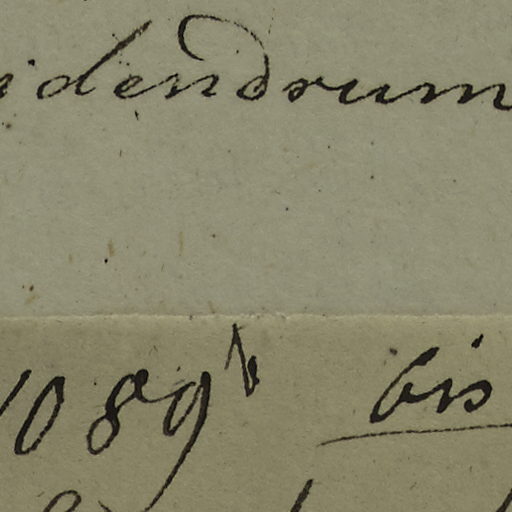 idendrum
1089b bis